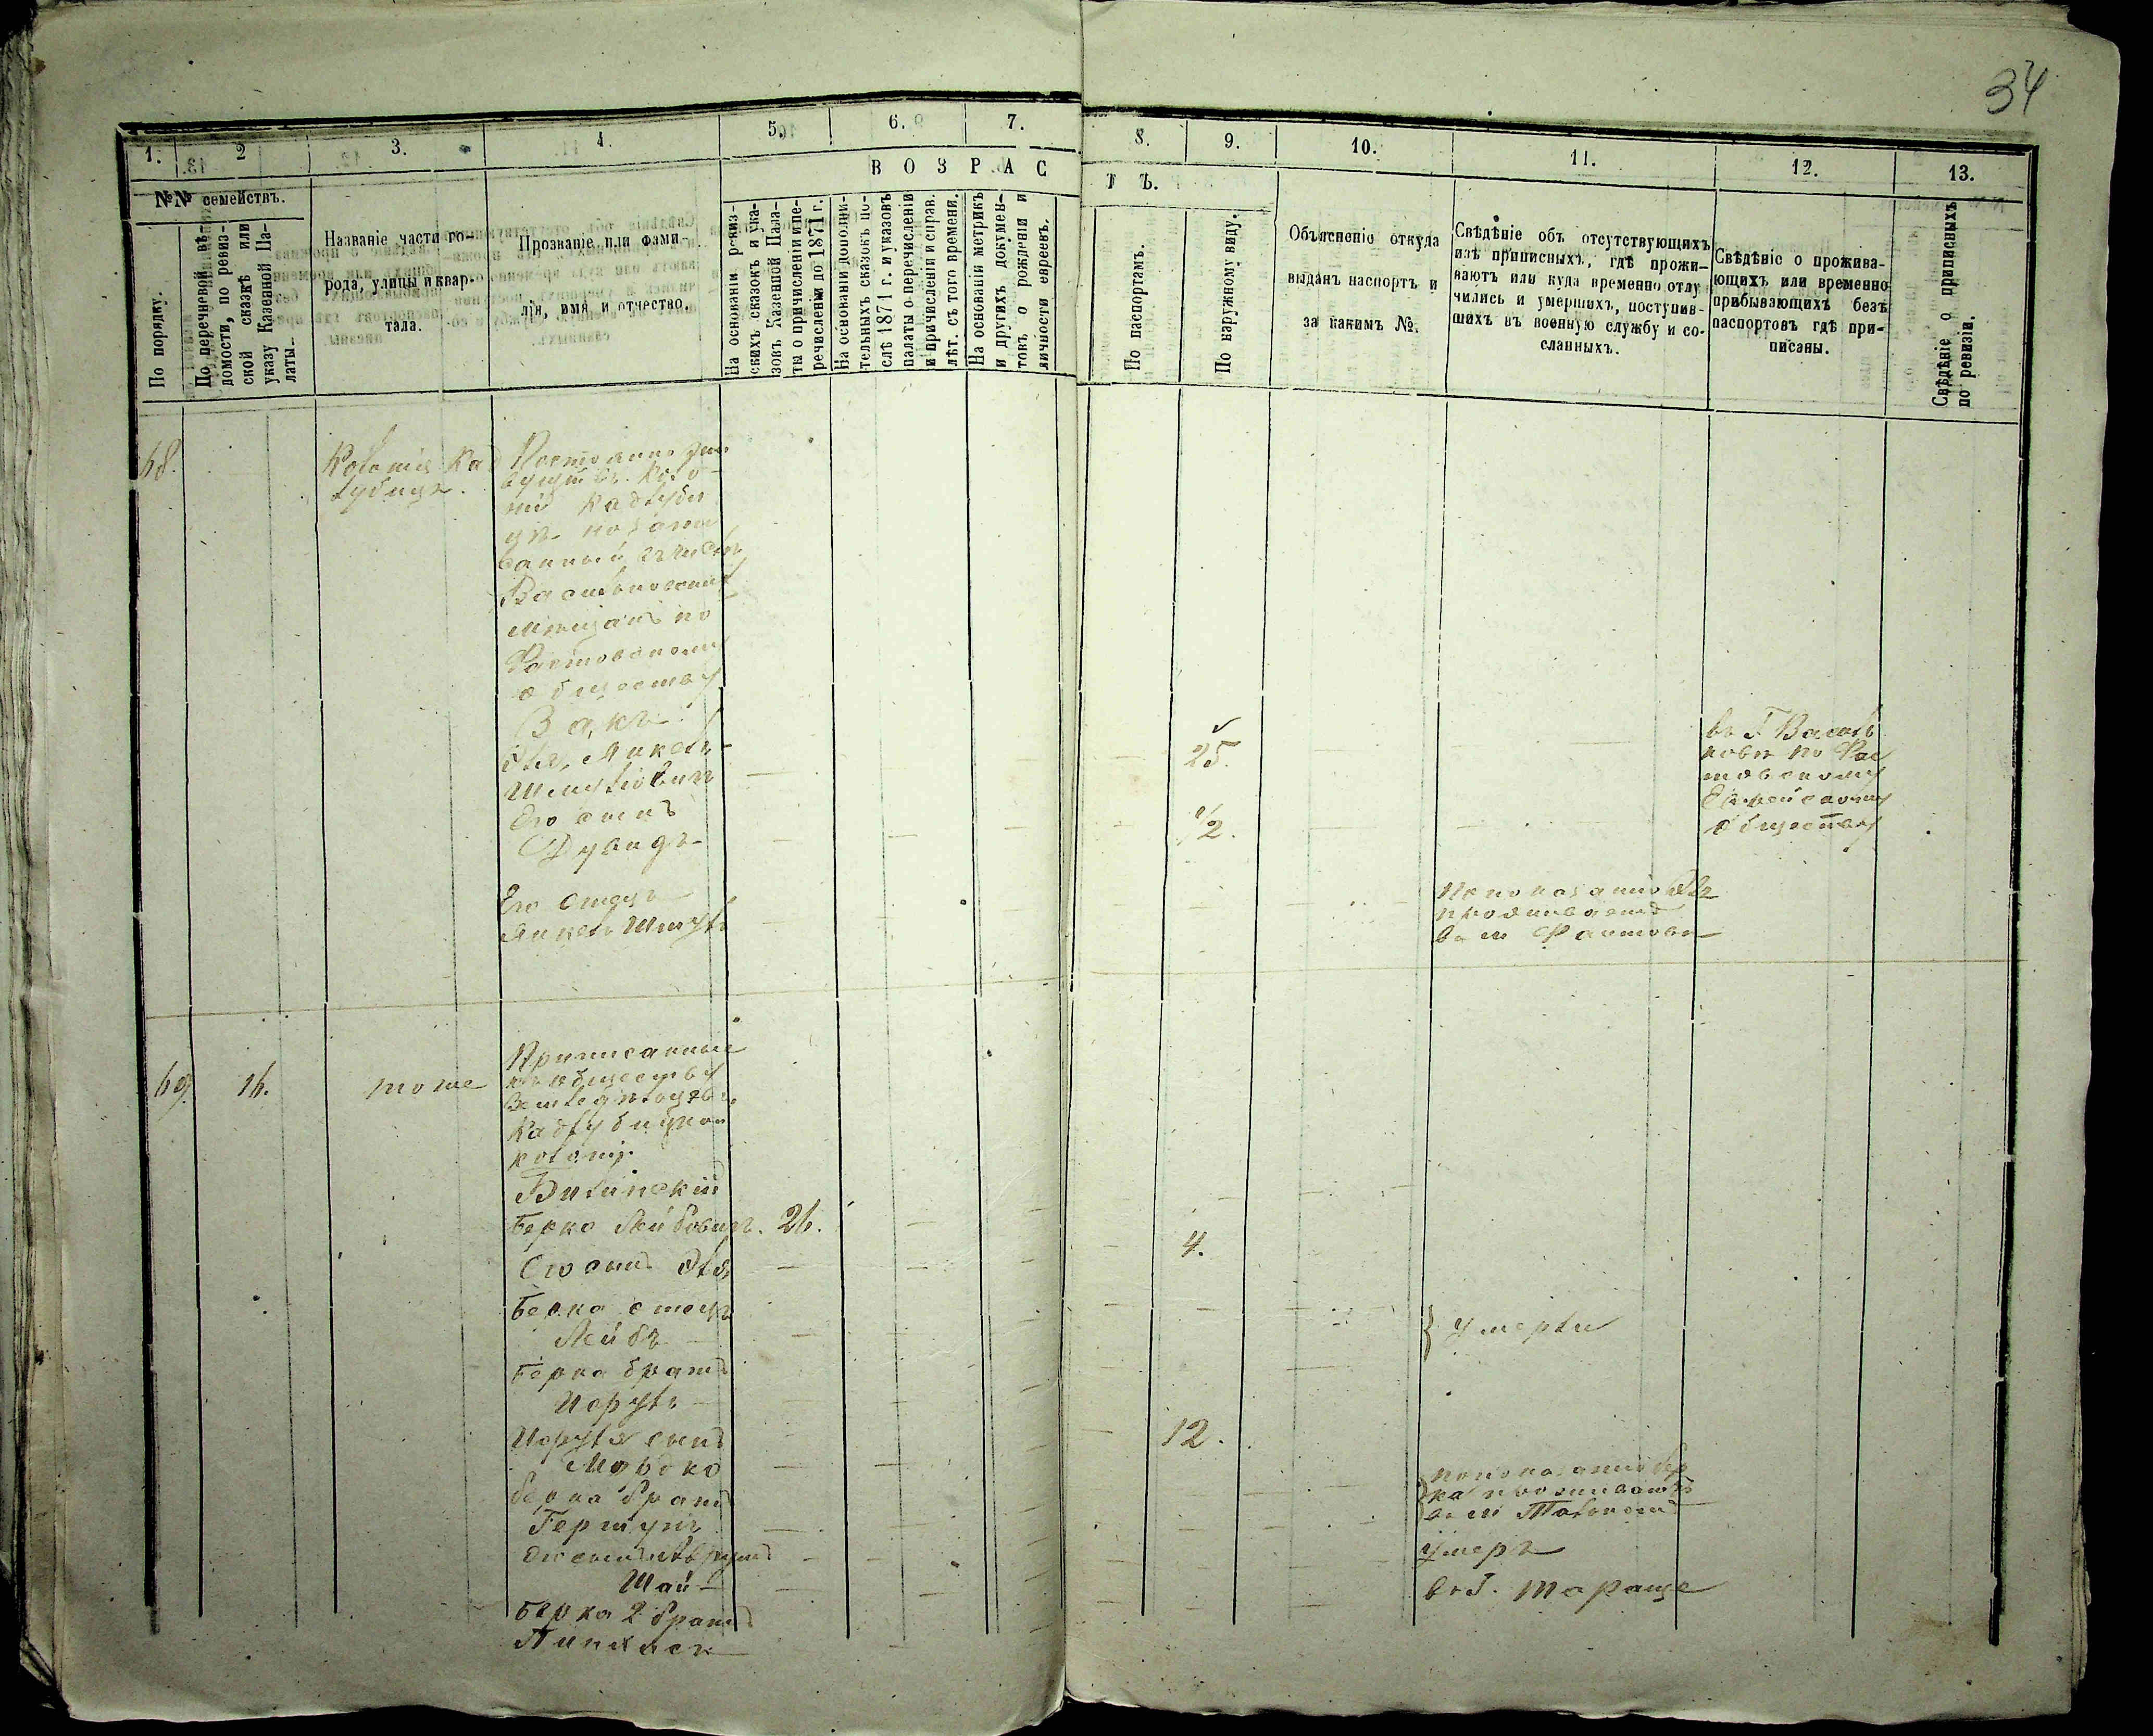 34
1.
2
3.
4.
5.
6.
7.
8.
9.
10.
11.
12.
13.
В О З Р А С
Т Ъ.
№№ семействъ.
По порядку.
По перечневой вѣ-
домости, по ревиз-
ской сказкѣ или
указу Казенной Па-
латы.
Названіе части го-
рода, улицы и квар-
тала.
Прозваніе или фами-
лія, имя и отчество.
На основаніи ревиз-
скихъ сказокъ и ука-
зовъ Казенной Пала-
ты о причисленіи и пе-
речисленіи по 1871 г.
На основаніи дополни-
тельныхъ сказокъ по-
слѣ 1871 г. и указовъ
палаты о перечисленіи
и причисленіи и справ.
лѣт. съ того времени.
На основаніи метрикъ
и другихъ докумен-
товъ о рожденіи и
личности евреевъ.
По паспортамъ.
По наружному виду.
Объясненіе откуда
выданъ паспортъ и
за какимъ №.
Свѣдѣніе объ отсутствующихъ
изъ приписныхъ, гдѣ прожи-
ваютъ или куда временно отлу
чились и умершихъ, поступив-
шихъ въ военную службу и со-
сланныхъ.
Свѣдѣніе о прожива-
ющихъ или временно
прибывающихъ безъ
паспортовъ гдѣ при-
писаны.
Свѣдѣніе о приписныхъ
по ревизіи.
68.
Колонія Кад
лубица.
Постоянно жи
вущій въ Коло-
ніи Кадлуби
цѣ
Васильковскій
мѣщанъ по
Фастовскому
обществу
Закъ
Эля, Янкель-
Шмулiовичъ
25.
въ Г. Василь
ковѣ по Фас
товскому
Еврейскому
обществу
Его сынъ
Дувидъ
1/2.
Его отецъ
Янкель Шмуль
По показанію Эля
проживаетъ
въ м Фастовѣ
69.
16.
тоже
Приписанные
къ обществу
Земледѣльцевъ
Кадлубицкой
колоніи
Билинскій
Берко Лейбовичъ. 26.
Его сынъ Эля
4.
Берка отецъ
Лейбъ
} умерли
Берка братъ
Исруль
Исруля сынъ
Мордко
12.
Берка братъ
Гершунъ
по показанію Бер
ка проживаетъ
въ м
Его сынъ Аврумъ
умеръ
Шай
въ Г. Тараще
Берка 2 братъ
Пинхасъ